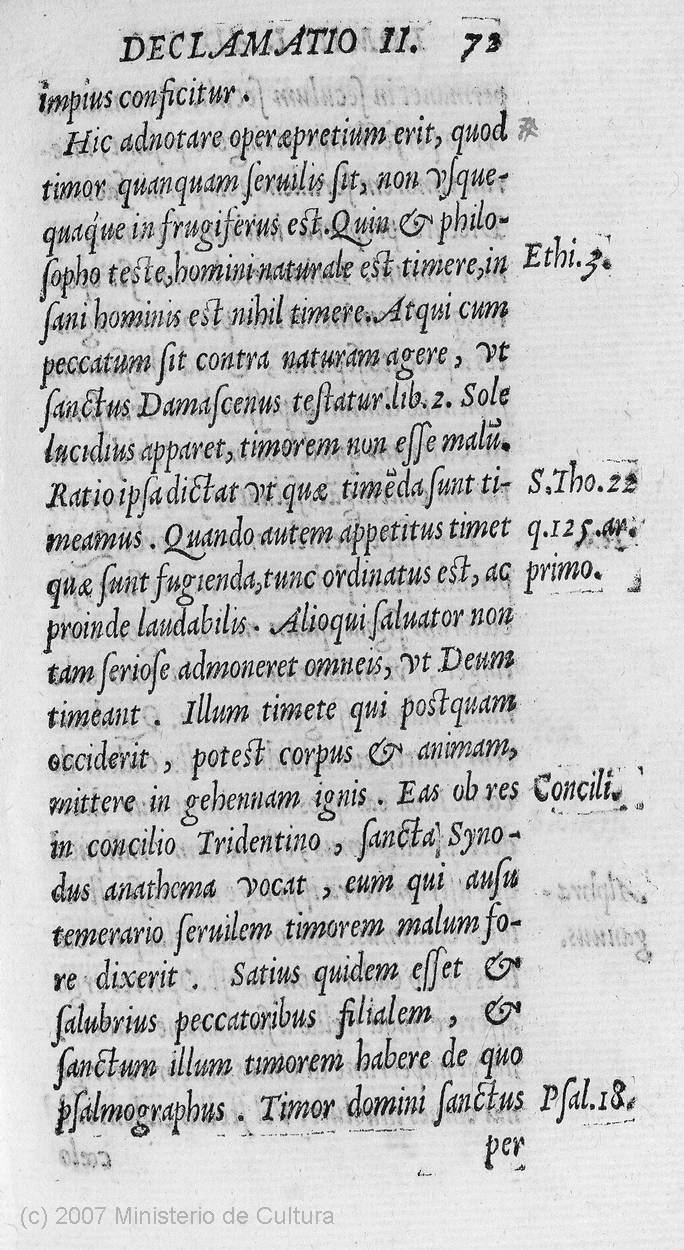 DECLAMATIO II. 73
impius conficitur.
Hic adnotare operæpretium erit, quod
timor quanquam ſeruilis ſit, non vſque-
quaq́ue in frugiferus est. Quin & philo-
ſopho teste, homini naturale est timere, in
Ethi. 3.
ſani hominis est nihil timere. Atqui cum
peccatum ſit contra naturam agere, vt
ſanctus Damaſcenus teſtatur. lib. 2. Sole
lucidius apparet, timorem non eſſe malũ.
Ratio ipſa dictat vt quæ timẽda ſunt ti-
S. Tho. 22
meamus. Quando autem appetitus timet
q. 125. ar.
quæ ſunt fugienda, tunc ordinatus est, ac
primo.
proinde laudabilis. Alioqui ſaluator non
tam ſerioſe admoneret omneis, vt Deum
timeant. Illum timete qui postquam
occiderit, potest corpus & animam,
mittere in gehennam ignis. Eas ob res
Concili.
in concilio Tridentino, ſancta Syno-
dus anathema vocat, eum qui auſu
temerario ſeruilem timorem malum fo-
re dixerit. Satius quidem eſſet &
ſalubrius peccatoribus filialem, &
ſanctum illum timorem habere de quo
pſalmographus. Timor domini ſanctus
Pſal. 18.
per
(c) 2007 Ministerio de Cultura